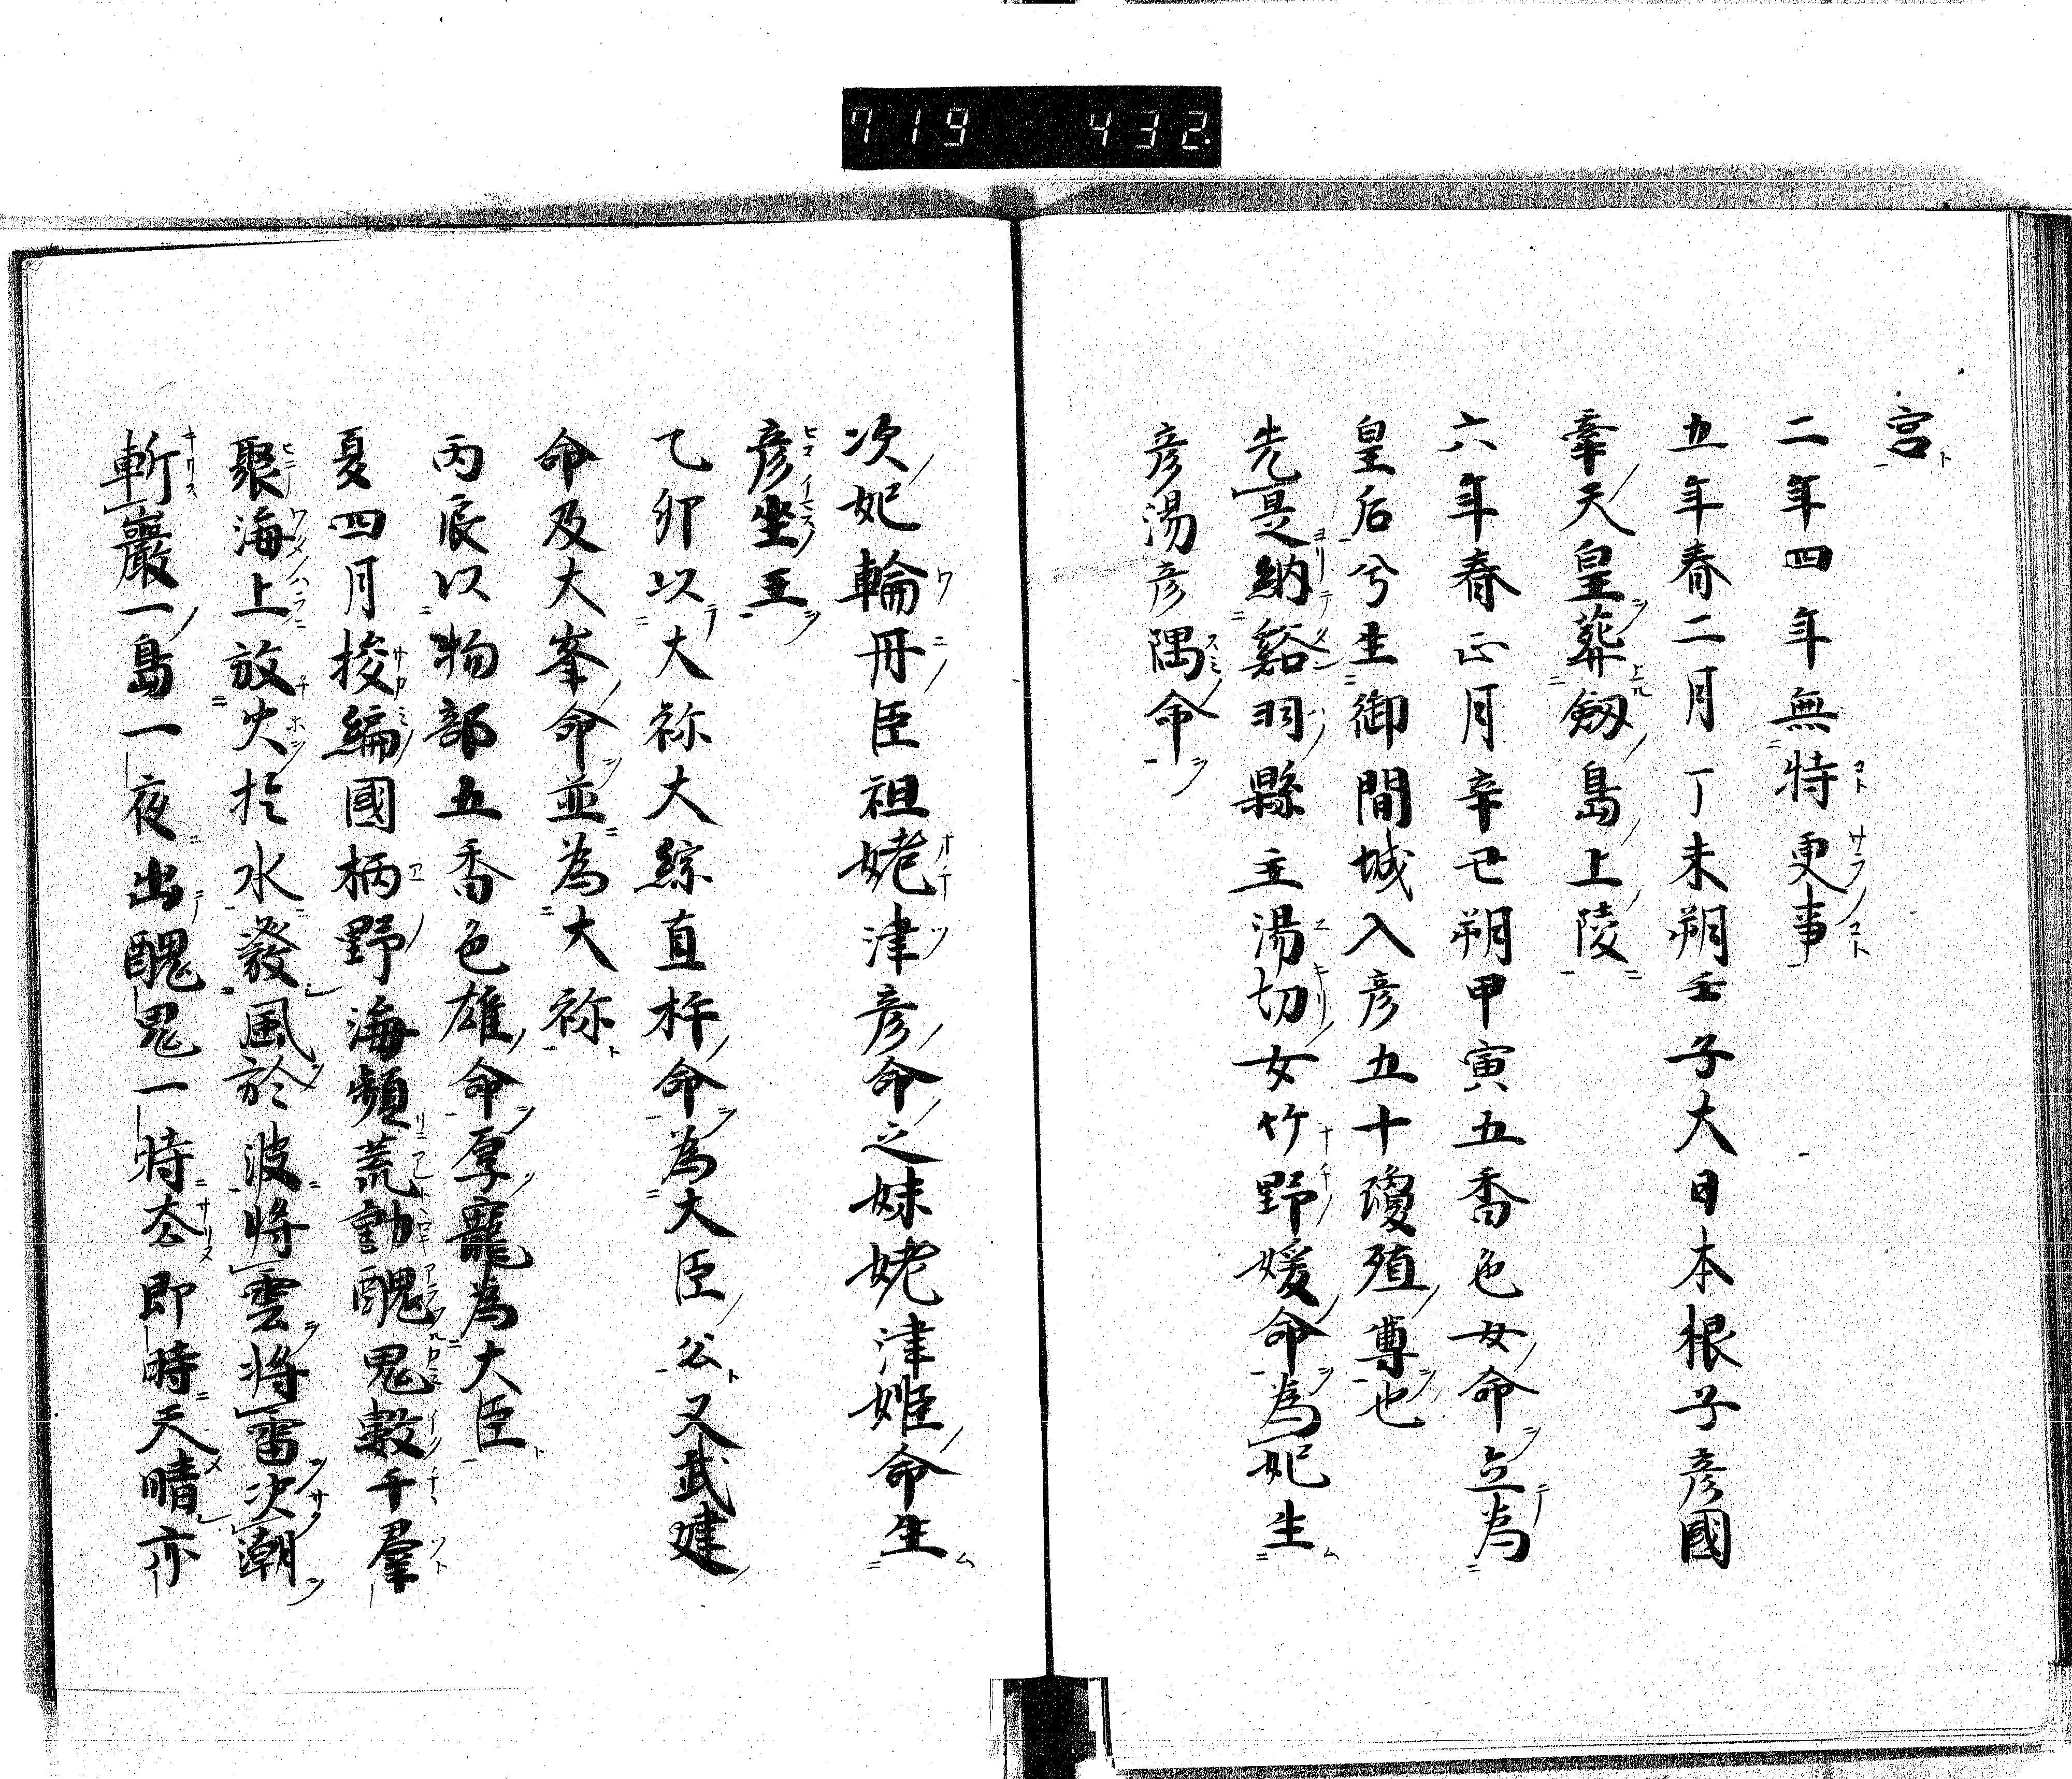 719 432.
宮
二年四年無特更事
五年春二月丁未朔壬子大日本根子彦國
牽天皇葬劔島上陵
六年春正月辛丑朔甲寅五香色女命立為
皇后兮生御間城入彦五十瓊殖尊也
先是納谿羽縣主湯切女竹野媛命為妃生
彦湯彦隅命
次妃輪冊臣祖姥津彦命之妹姥津姫命生
彦坐王
乙卯以大祢大綜直杵命為大臣公又武建
命及大峯命並為大祢
丙辰以物部五香色雄命厚寵為大臣
夏四月梭編國柄野海頻荒動醜鬼數千羣
聚海上放火扵水發風於波將雲將雷决潮
斬巖一島一夜出醜鬼一時厺即時天晴亦